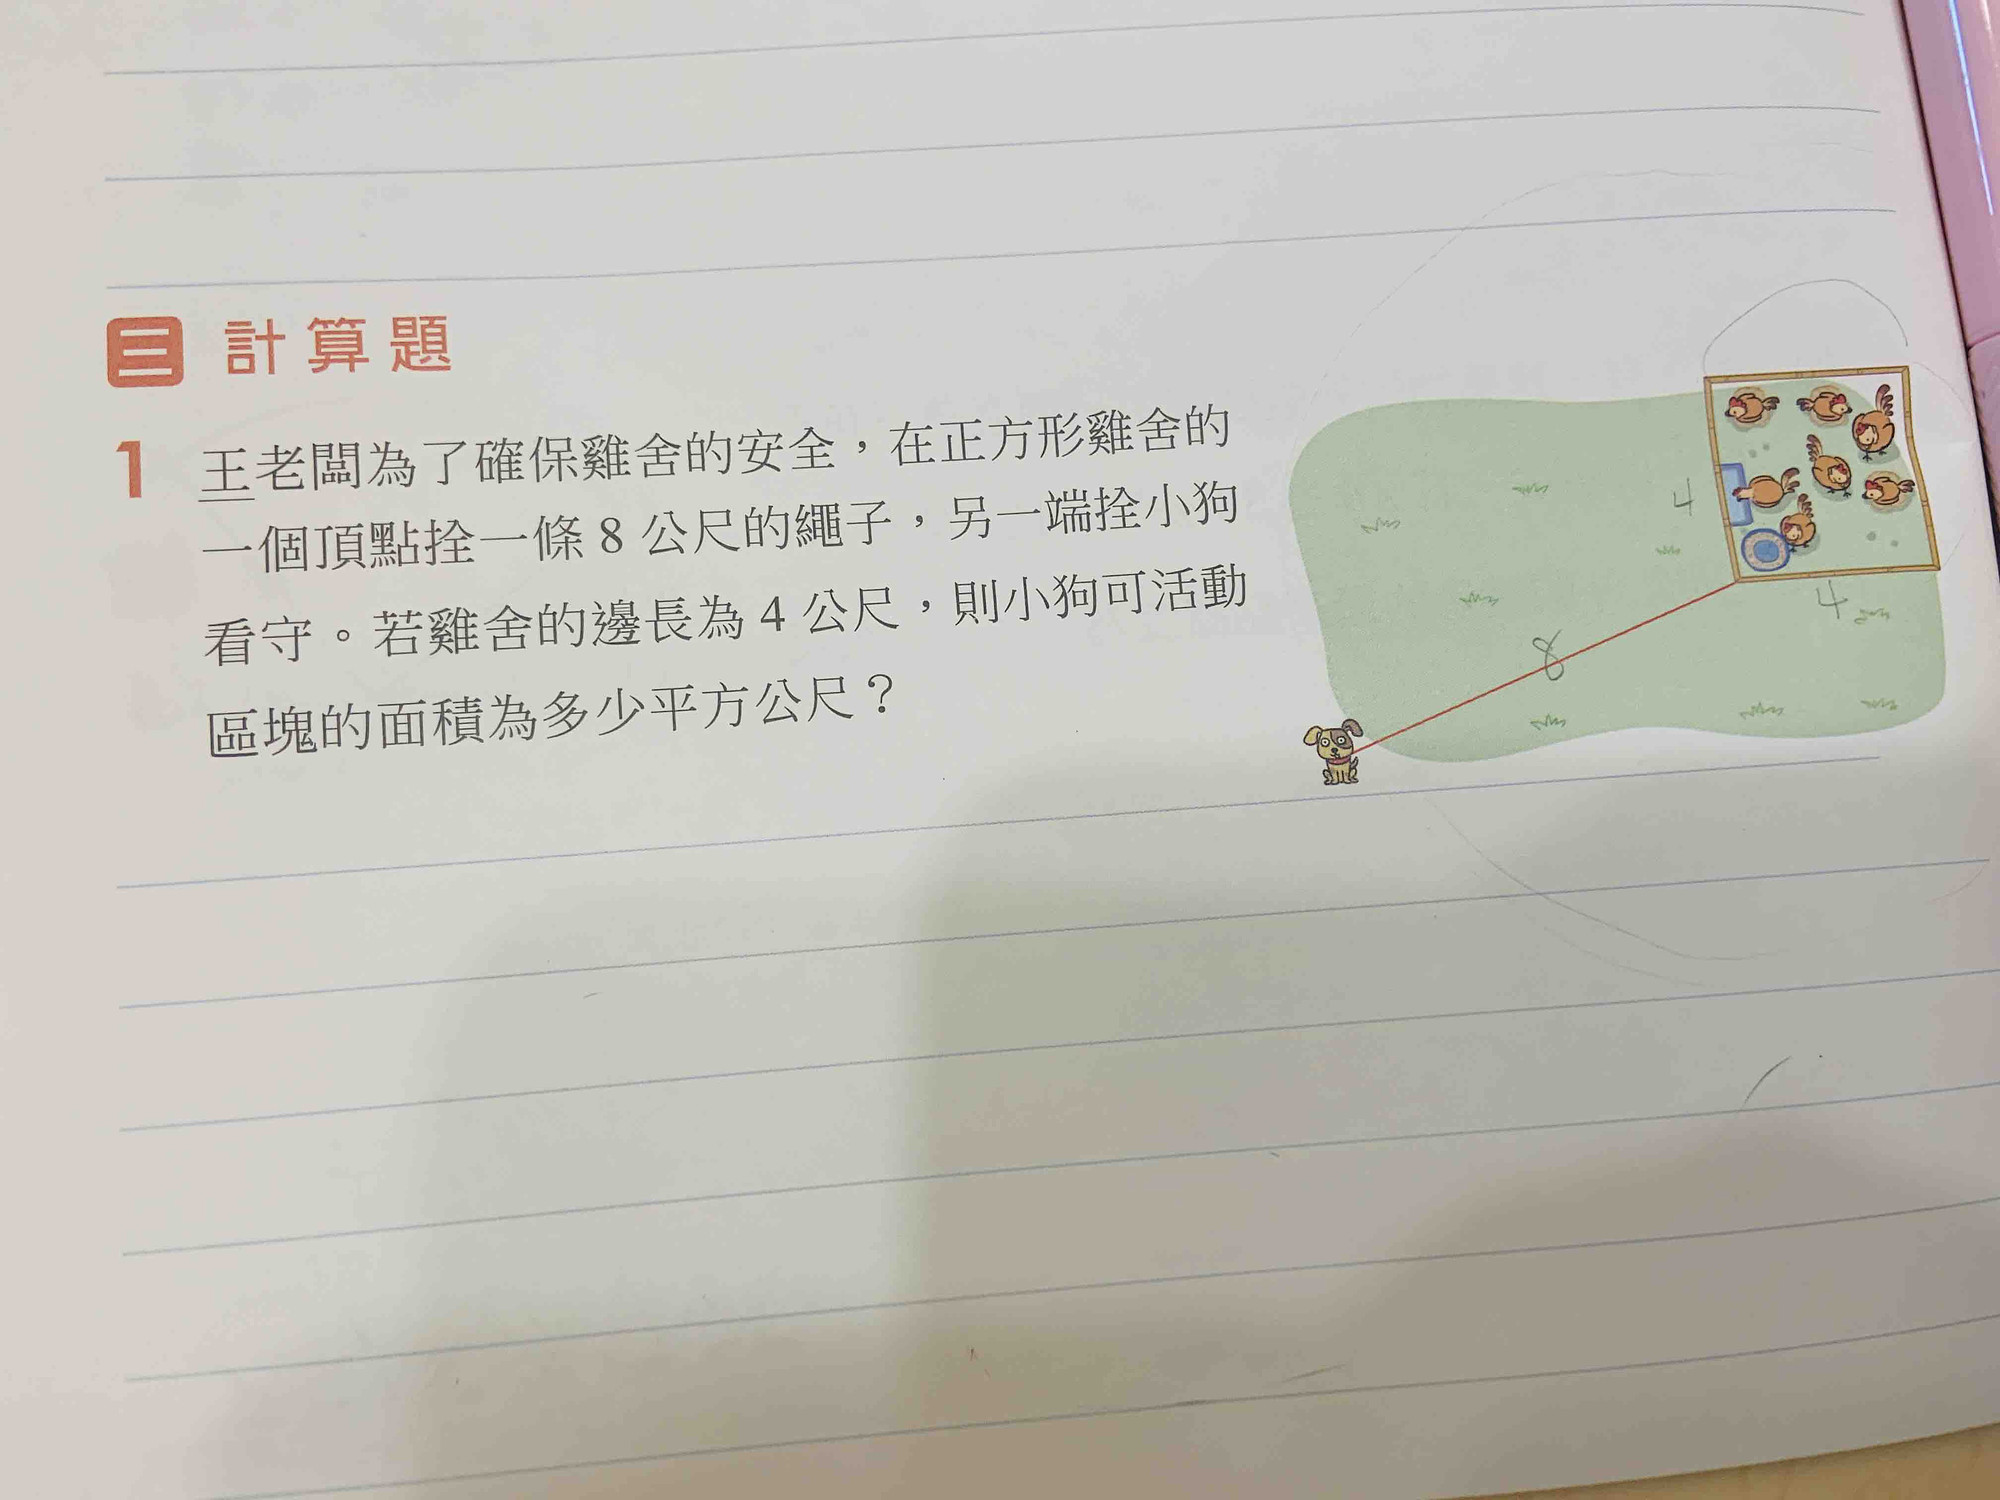 三 計算題
1 王老闆為了確保雞舍的安全，在正方形雞舍的
一個頂點拴一條 8 公尺的繩子，另一端拴小狗
看守。若雞舍的邊長為 4 公尺，則小狗可活動
區塊的面積為多少平方公尺？
4
4
8